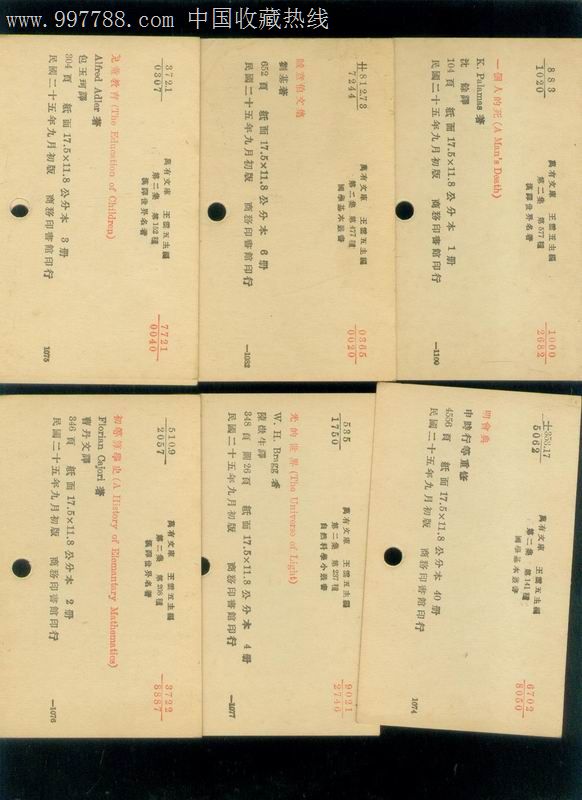 www.997788.com 中国收藏热线
3721
0307
兒童教育 (The Education of Children)
Alfred Adler 著
包玉珂譯
304 頁 紙面 17.5×11.8 公分本 3 册
民國二十五年九月初版 商務印書館印行
萬有文庫 王雲五主編
第二集 第152種
漢譯世界名著
7721
0040
1075
廿81273
7244
誠意伯文集
劉基著
652 頁 紙面 17.5×11.8 公分本 6 册
民國二十五年九月初版 商務印書館印行
萬有文庫 王雲五主編
第二集 第477種
國學基本叢書
0365
0020
—1082
883
1020
一個人的死 (A Man's Death)
K. Palamas 著
沈餘譯
104 頁 紙面 17.5×11.8 公分本 1 册
民國二十五年九月初版 商務印書館印行
萬有文庫 王雲五主編
第二集 第577種
漢譯世界名著
1000
2682
—1100
510.9
2057
初等算學史 (A History of Elementary Mathematics)
Florian Cajori 著
曹丹文譯
346 頁 紙面 17.5×11.8 公分本 2 册
民國二十五年九月初版 商務印書館印行
萬有文庫 王雲五主編
第二集 第208種
漢譯世界名著
3722
8887
—1076
535
1750
光的世界 (The Universe of Light)
W. H. Bragg 著
陳嶽生譯
348 頁 圖26頁 紙面 17.5×11.8 公分本 4 册
民國二十五年九月初版 商務印書館印行
萬有文庫 王雲五主編
第二集 第237種
自然科學小叢書
9021
2746
—1077
士353.17
5062
明會典
申時行等重修
4556 頁 紙面 17.5×11.8 公分本 40 册
民國二十五年九月初版 商務印書館印行
萬有文庫 王雲五主編
第二集 第141種
國學基本叢書
6702
8050
1074